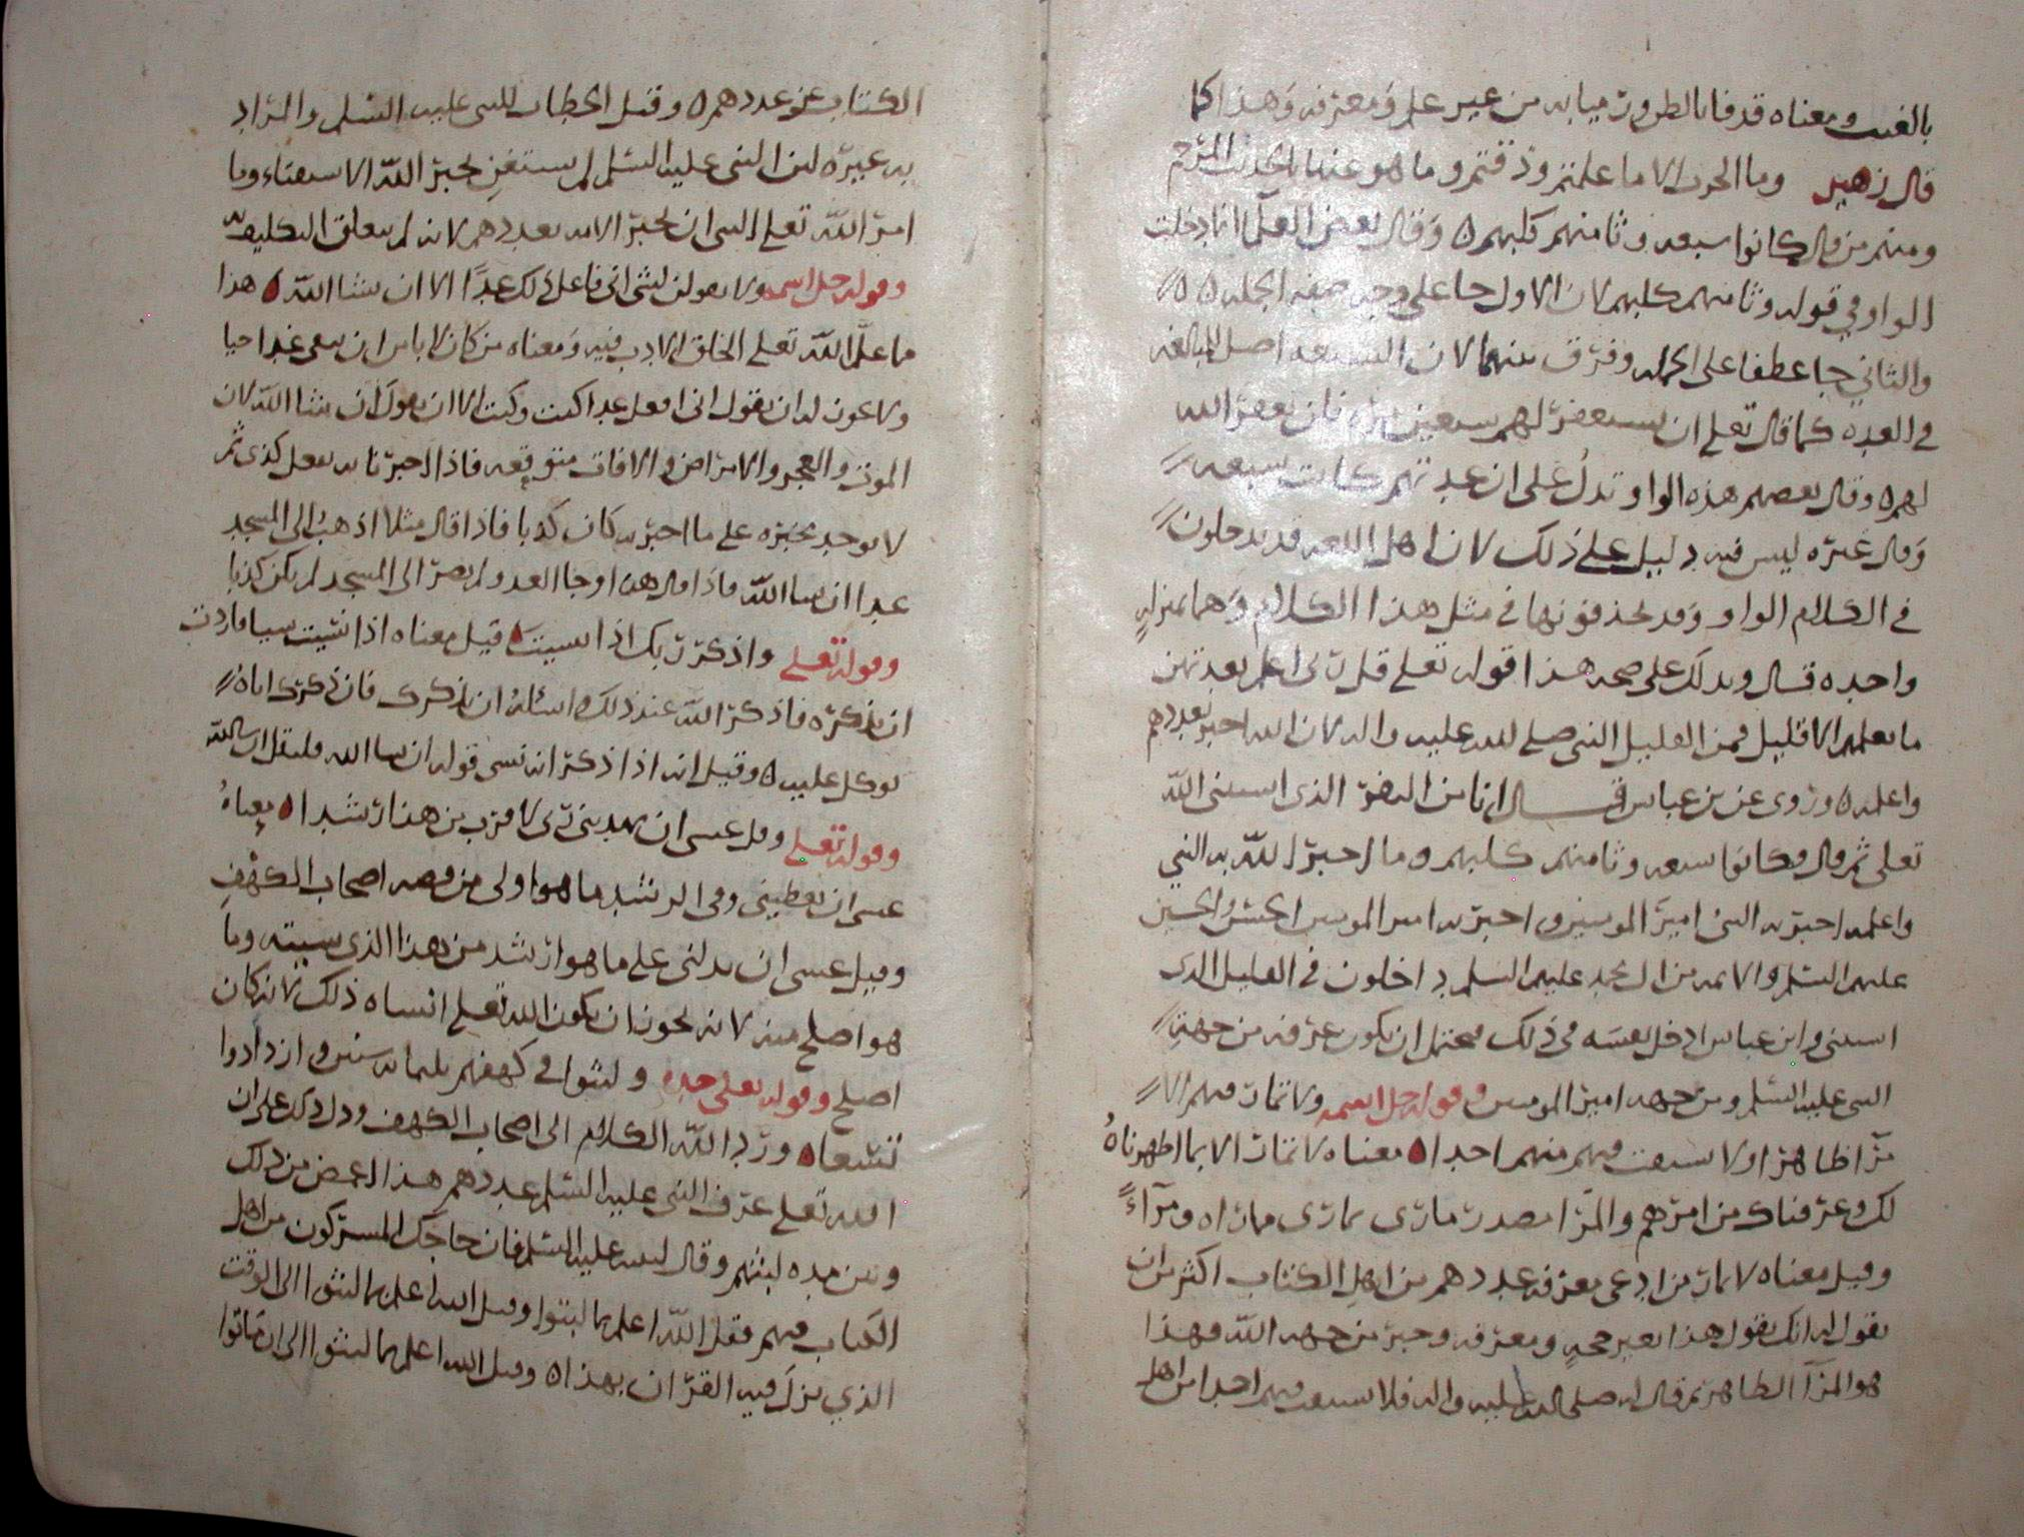 بالغيب ومعناه قذفا بالظن ورميا به من غير علم ومعرفه وهذا كما
قال زهير وما الحرب الا ما علمتم وذقتم وما هو عنها بالحديث المرجم
ومنهم من قال كانوا سبعه وثامنهم كلبهم ه وقال بعض العلما انما دخلت
الواو في قوله وثامنهم كلبهم لان الاول جا على وجه صفه الجمله ه
والثاني جا عطفا على الجمله وفرق بينهما لان السبعه اصل المبالغه
في العده كما قال تعلى ان يستغفر لهم سبعين مره فلن يغفر الله
لهم ه وقال بعضهم هذه الواو تدل على ان عدتهم كانت سبعه
وقال غيره ليس فيه دليل على ذلك لان اهل اللغه قد يدخلون
في الكلام الواو وقد يحذفونها في مثل هذا الكلام وهما بمنزله
واحده قال ويدلك على صحه هذا قوله تعلى قل ربي اعلم بعدتهم
ما يعلمهم الا قليل فمن القليل النبي صلى الله عليه واله لان الله اخبره بعددهم
واعلمه ه وروى عن بن عباس قال انا من النفر الذي استثنى الله
تعلى ثم قال وكانوا سبعه وثامنهم كلبهم وما اخبر الله به النبي
واعلمه اخبر به النبي امير المومنين واخبر به امير المومنين الحسن والحسين
عليهم السلم والائمه من ال محمد عليهم السلم داخلون في القليل الذي
استثنى وابن عباس ادخل نفسه في ذلك فيحتمل ان يكون عرفه من جهه
النبي عليه السلم ومن جهه امير المومنين وقوله جل اسمه ولا تمار فيهم الا
مرآ ظاهرا ولا تستفت فيهم منهم احدا ه معناه لا تمار الا بما اظهرناه
لك وعرفناك من امرهم والمرا مصدر مارى يمارى مماراه ومرآءً
وقيل معناه لا تمار من ادعى معرفه عددهم من اهل الكتاب اكثر من ان
تقول له انك تقول هذا بغير حجه ومعرفه وخبر من جهه الله فهذا
هو المرآ الظاهر ثم قال له صلى الله عليه واله فلا تستفت فيهم احدا من اهل
الكتاب عن عددهم ه وقيل الخطاب للنبي عليه السلم والمراد
به غيره لان النبي عليه السلم لم يستغن بخبر الله الا استفتاء وما
امر الله تعلى النبي ان يخبر الامه بعددهم لانه لم يتعلق التكليف به
وقوله جل اسمه ولا تقولن لشى انى فاعل ذلك غدًا الا ان يشا الله ه هذا
ما علم الله تعلى الخلق الادب فيه ومعناه من كان لا ياس ان يبقى غدا حيا
ولا يجوز له ان يقول انى افعل غدا كيت وكيت الا ان يقول ان يشا الله لان
الموت والعجز والامراض والافات متوقعه فاذا اخبر بانه يفعل كذى ثم
لا يوجد مخبره على ما اخبر به كان كذبا فاذا قال مثلا اذهب الى المسجد
غدا ان يشا الله فاذا قال هذا وجا الغد ولم يصر الى المسجد لم يكن كذبا
وقوله تعلى واذكر ربك اذا نسيت ه قيل معناه اذا نسيت شيا فاردت
ان تذكره فاذكر الله عند ذلك واسئله ان يذكرك فان ذكرك اياه
توكل عليه ه وقيل انه اذا ذكر انه نسى قوله ان يشا الله فليقل ان يشا الله
وقوله تعلى وقل عسى ان يهديني ربى لاقرب من هذا رشدا ه معناه
عسى ان يعطينى ربى الرشد ما هو اولى من قصه اصحاب الكهف
وقيل عسى ان يدلنى على ما هو ارشد من هذا الذى نسيته وما
هو اصلح منه لانه يجوز ان يكون الله تعلى انساه ذلك لانه كان
اصلح وقوله تعلى جده ولبثوا في كهفهم ثلثمائه سنين وازدادوا
تسعا ه ورد الله الكلام الى اصحاب الكهف ودل ذلك على ان
الله تعلى عرف النبي عليه السلم عددهم هذا الغرض من ذلك
وبين مده لبثهم وقال لنبيه عليه السلم فان حاجك المشركون من اهل
الكتاب فيهم فقل الله اعلم بما لبثوا وقيل الله اعلم بما لبثوا الى الوقت
الذي نزل فيه القران بهذا ه وقيل الله اعلم بما لبثوا الى ان ماتوا